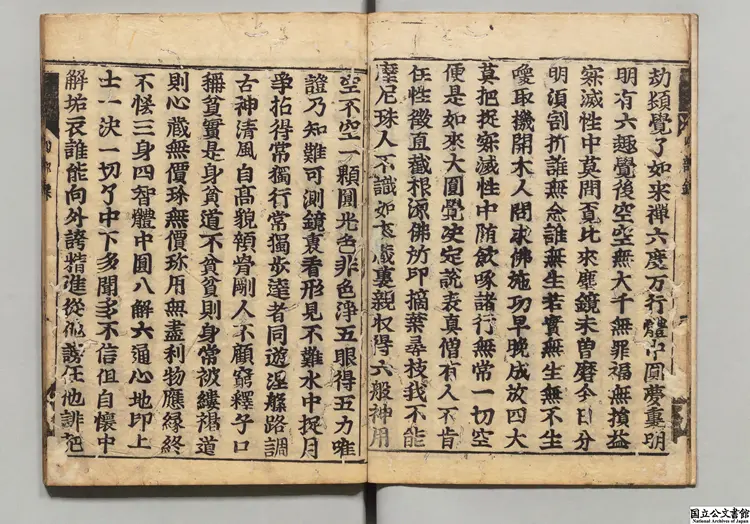 劫頓覺了如來禪六度万行體中圓夢裏明
明有六趣覺後空空無大千無罪福無損益
寂滅性中莫問覓比來塵鏡未曽磨今日分
明湏割折誰無念誰無生若實無生無不生
喚取機開木人問求佛施功早晚成放四大
莫把捉寂滅性中随飲啄諸行無常一切空
便是如來大圓覺决定說表真僧有人不肯
任性徵直截根源佛所印摘葉尋枝我不能
摩尼珠人不識如來蔵裏親収得六般神用
空不空一顆圓光色非色淨五眼得五力唯
證乃知難可測鏡裏看形見不難水中捉月
爭拈得常獨行常獨步達者同遊涅槃路調
古神清風自髙貌顇骨剛人不顧窮釋子口
稱貧實是身貧道不貧貧則身常被縷褐道
則心蔵無價珎無價珎用無盡利物應緣終
不悋三身四智體中圓八解六通心地印上
士一决一切了中下多聞多不信但自懷中
解垢衣誰能向外誇精進從他謗任他誹把
国立公文書館
National Archives of Japan